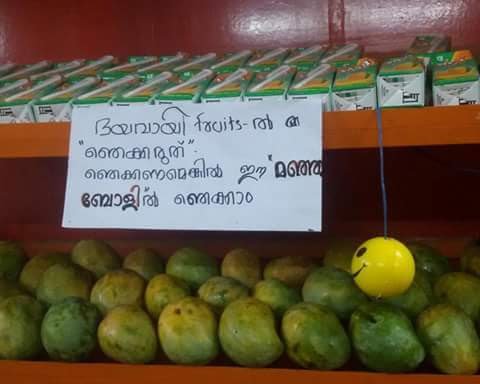 ദയവായി fruits-ൽ
"ഞെക്കരുത്".
ഞെക്കണമെങ്കിൽ ഈ "മഞ്ഞ
ബോളി"ൽ ഞെക്കാം